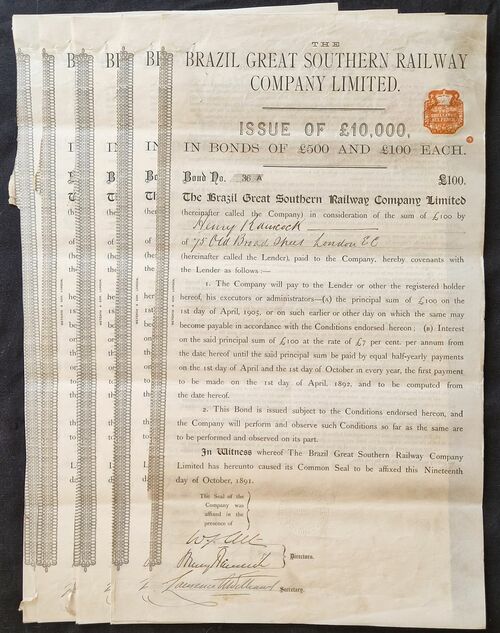 THE
BRAZIL GREAT SOUTHERN RAILWAY
COMPANY LIMITED.
ISSUE OF £10,000,
IN BONDS OF £500 AND £100 EACH.
Bond No. 36 A £100.
The Brazil Great Southern Railway Company Limited
(hereinafter called the Company) in consideration of the sum of £100 by
Henry Hancock
of 75 Old Broad Street London EC
(hereinafter called the Lender), paid to the Company, hereby covenants with
the Lender as follows :—
1. The Company will pay to the Lender or other the registered holder
hereof, his executors or administrators—(A) the principal sum of £100 on the
1st day of April, 1905, or on such earlier or other day on which the same may
become payable in accordance with the Conditions endorsed hereon ; (B) Interest
on the said principal sum of £100 at the rate of £7 per cent. per annum from
the date hereof until the said principal sum be paid by equal half-yearly payments
on the 1st day of April and the 1st day of October in every year, the first payment
to be made on the 1st day of April, 1892, and to be computed from
the date hereof.
2. This Bond is issued subject to the Conditions endorsed hereon, and
the Company will perform and observe such Conditions so far as the same are
to be performed and observed on its part.
In Witness whereof The Brazil Great Southern Railway Company
Limited has hereunto caused its Common Seal to be affixed this Nineteenth
day of October, 1891.
The Seal of the
Company was
affixed in the
presence of
Henry Hancock
Directors.
Secretary.